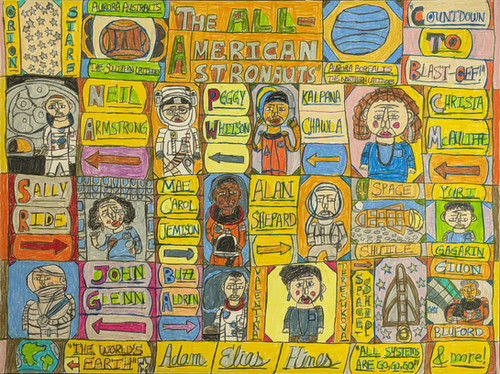 ORION
STARS
AURORA AUSTRALIS
THE ALL-
AMERICAN
ASTRONAUTS
AURORA BOREALIS
COUNTDOWN
TO
BLAST-OFF!
NEIL
ARMSTRONG
PEGGY
WHITSON
KALPANA
CHAWLA
CHRISTA
McAULIFFE
SALLY
RIDE
MAE
CAROL
JEMISON
ALAN
SHEPARD
SPACE
SHUTTLE
YURI
GAGARIN
JOHN
GLENN
BUZZ
ALDRIN
VALENTINA
TERESHKOVA
SPACE
SHIP
GUION
BLUFORD
"THE WORLD'S
EARTH"
Adam Elias Hines
"ALL SYSTEMS
ARE GO, GO, GO!"
& more!